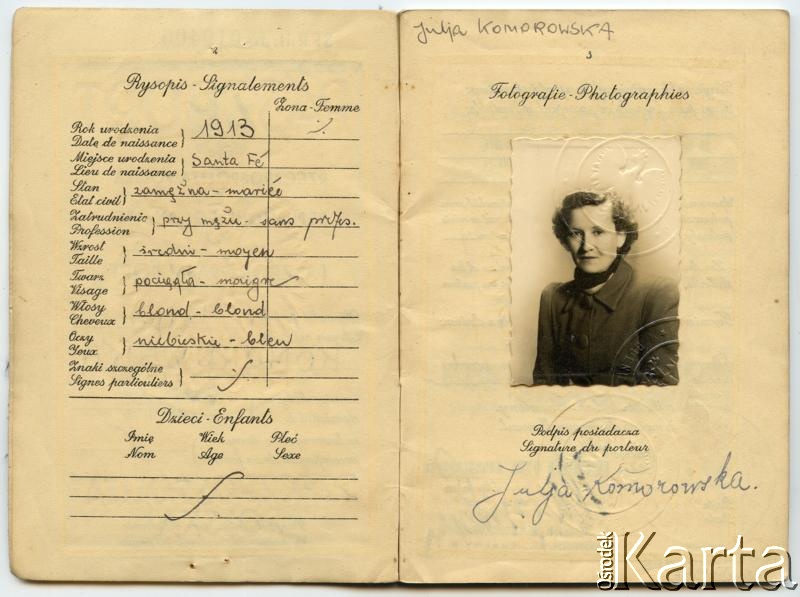 2
Rysopis - Signalements
Żona - Femme
Rok urodzenia
Date de naissance } 1913
Miejsce urodzenia
Lieu de naissance } Santa Fé
Stan
Etat civil } zamężna - mariée
Zatrudnienie
Profession } przy mężu - sans profes.
Wzrost
Taille } średni - moyen
Twarz
Visage } pociągła - maigre
Włosy
Cheveux } blond - blond
Oczy
Yeux } niebieskie - bleu
Znaki szczególne
Signes particuliers }
Dzieci - Enfants
Imię Wiek Płeć
Nom Age Sexe
Julja KOMOROWSKA
3
Fotografie - Photographies
Podpis posiadacza
Signature du porteur
Julja Komorowska.
Ośrodek Karta